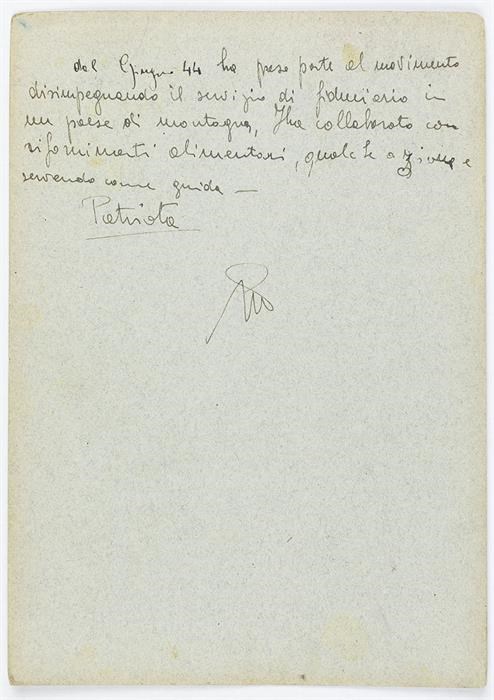 dal Giugno 44 ha preso parte al movimento
disimpegnando il servizio di fiduciario in
un paese di montagna, Iha collaborato con
rifornimenti alimentari, qualche azione e
servendo come guida —
Patriota